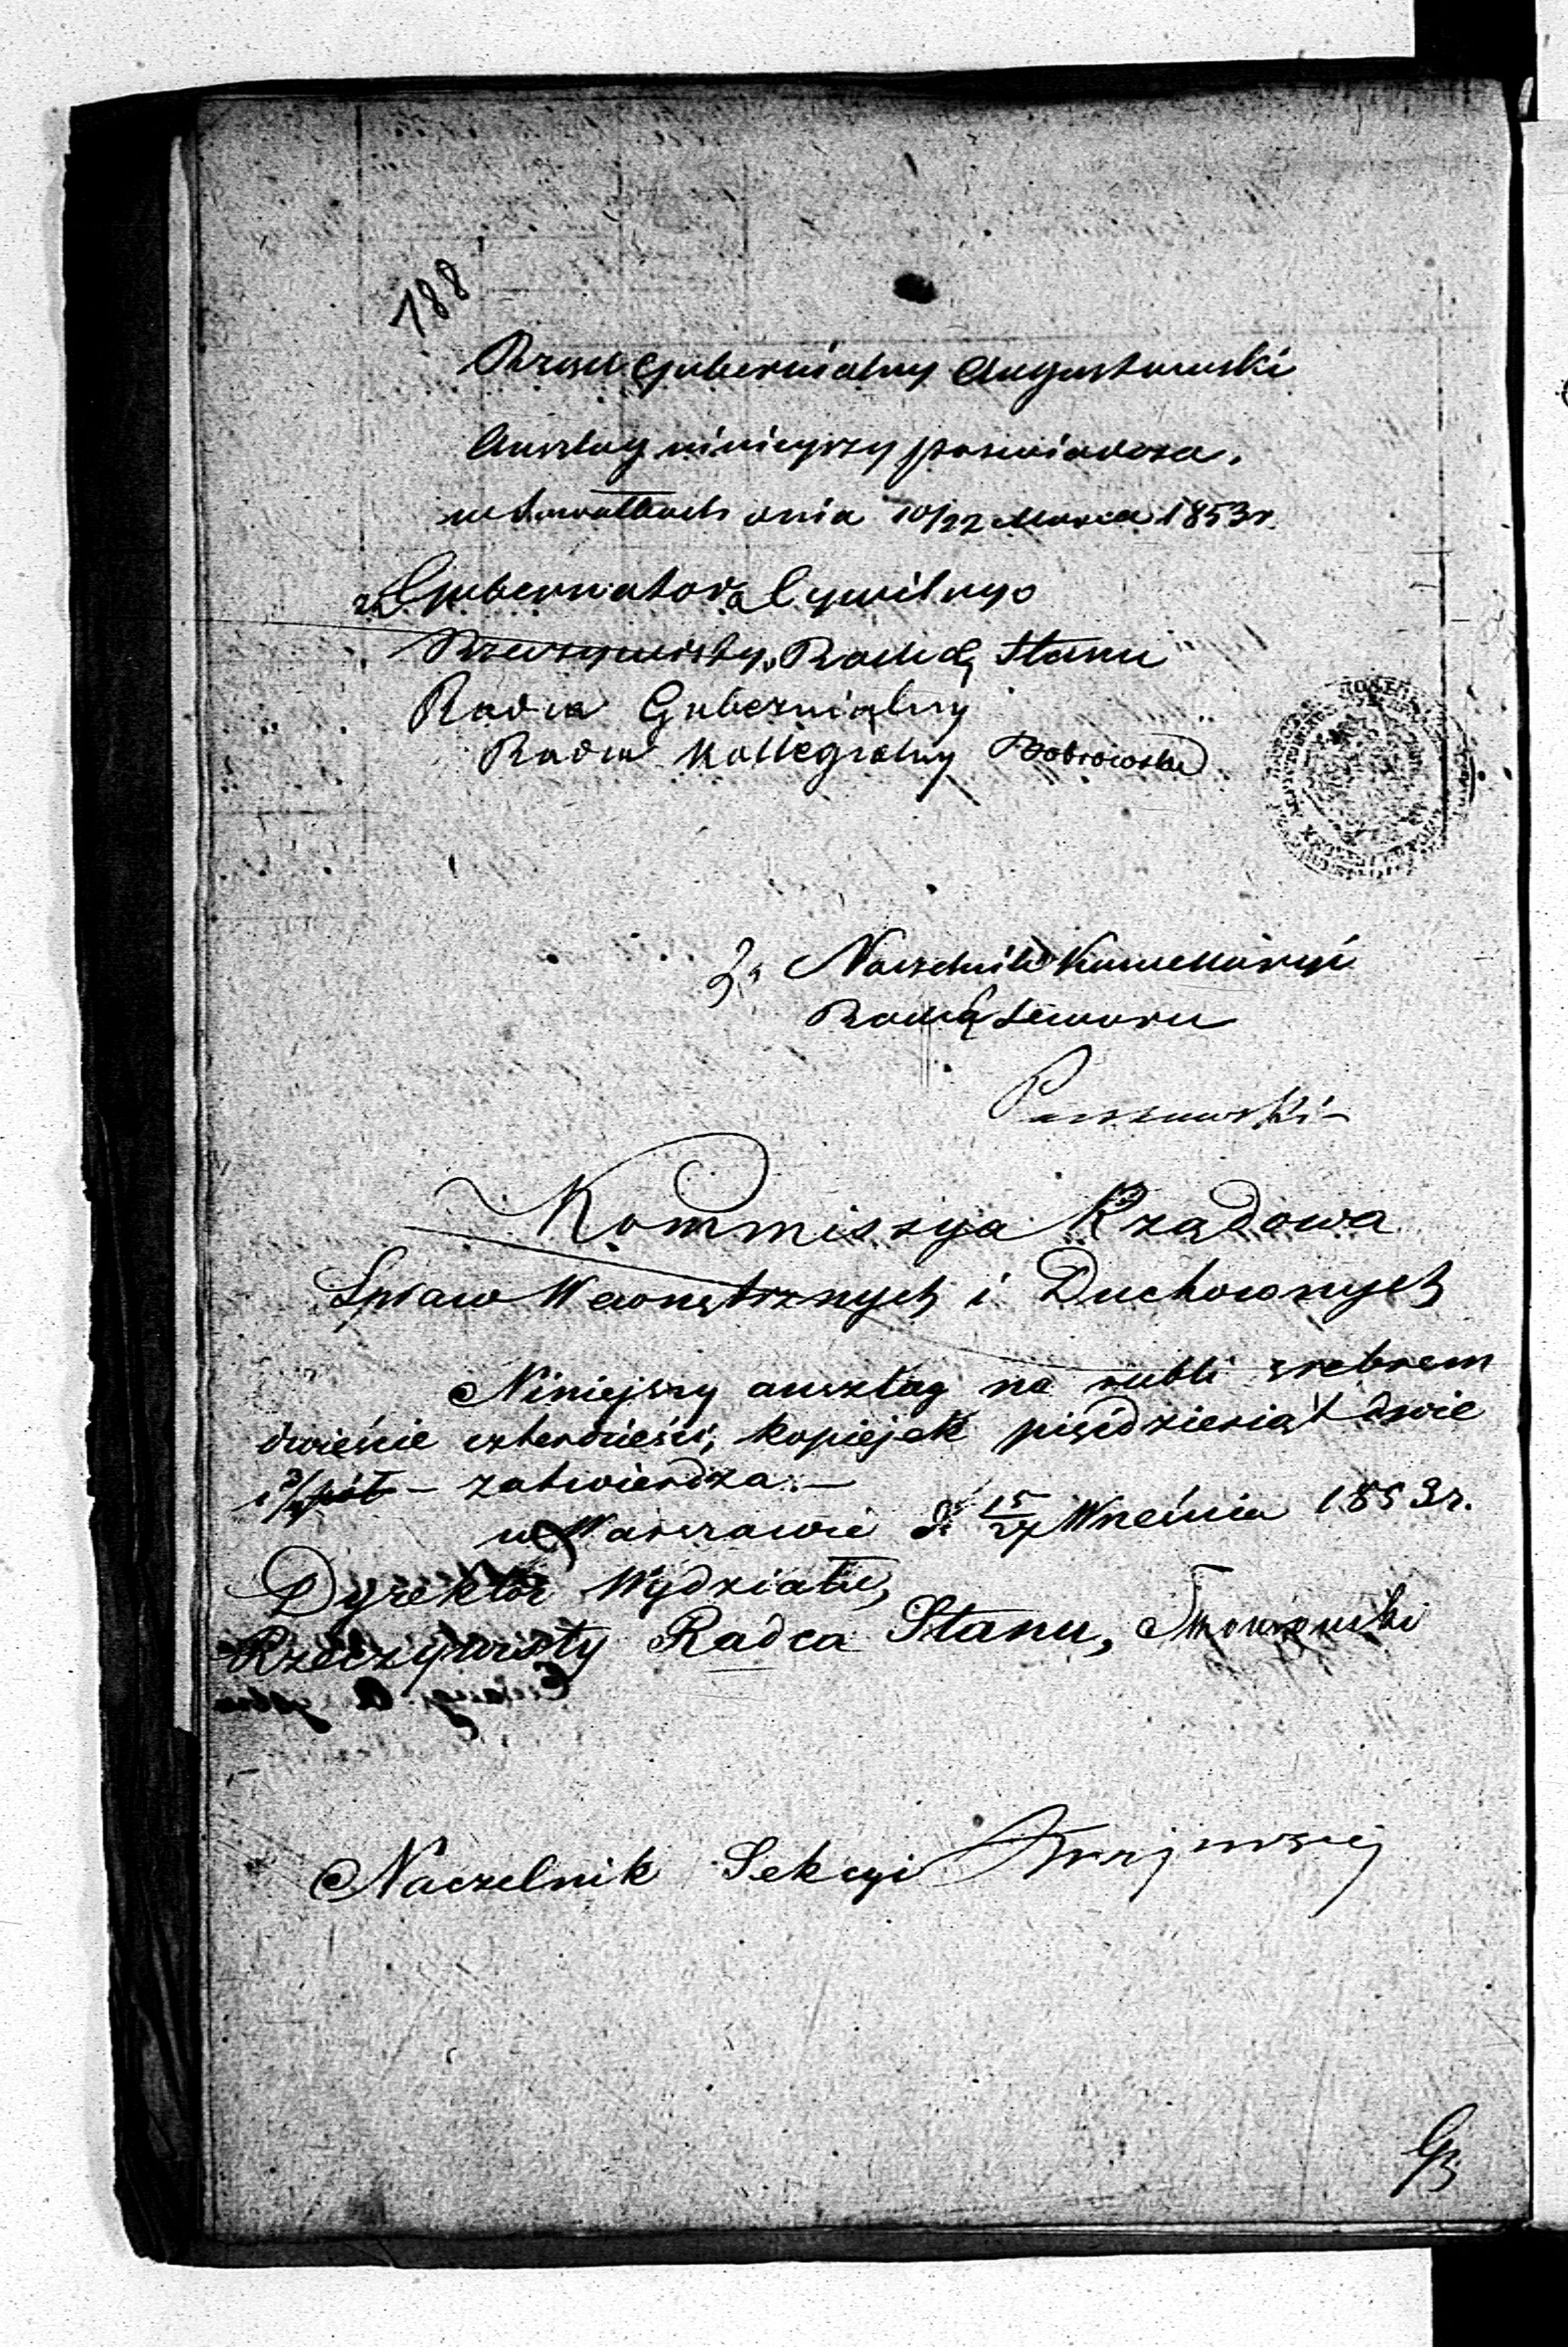 188
Rząd Gubernialny Augustowski
Anszlag niniejszy poświadcza.
w Suwałkach dnia 10/22 Marca 1853 r.
za Gubernatora Cywilnego
Rzeczywisty Radca Stanu
Radca Gubernialny
Radca Kollegialny
Za Naczelnika Kancellaryi
Radca Honoru
Kommissya Rządowa
Spraw Wewnętrznych i Duchownych
Niniejszy anszlag na rubli srebrem
dwieście czterdzieści, kopiejek pięćdziesiąt dwie
i pół – zatwierdza. –
w Warszawie d. 15/27 Września 1853 r.
Dyrektor Wydziału,
Rzeczywisty Radca Stanu,
Naczelnik Sekcyi